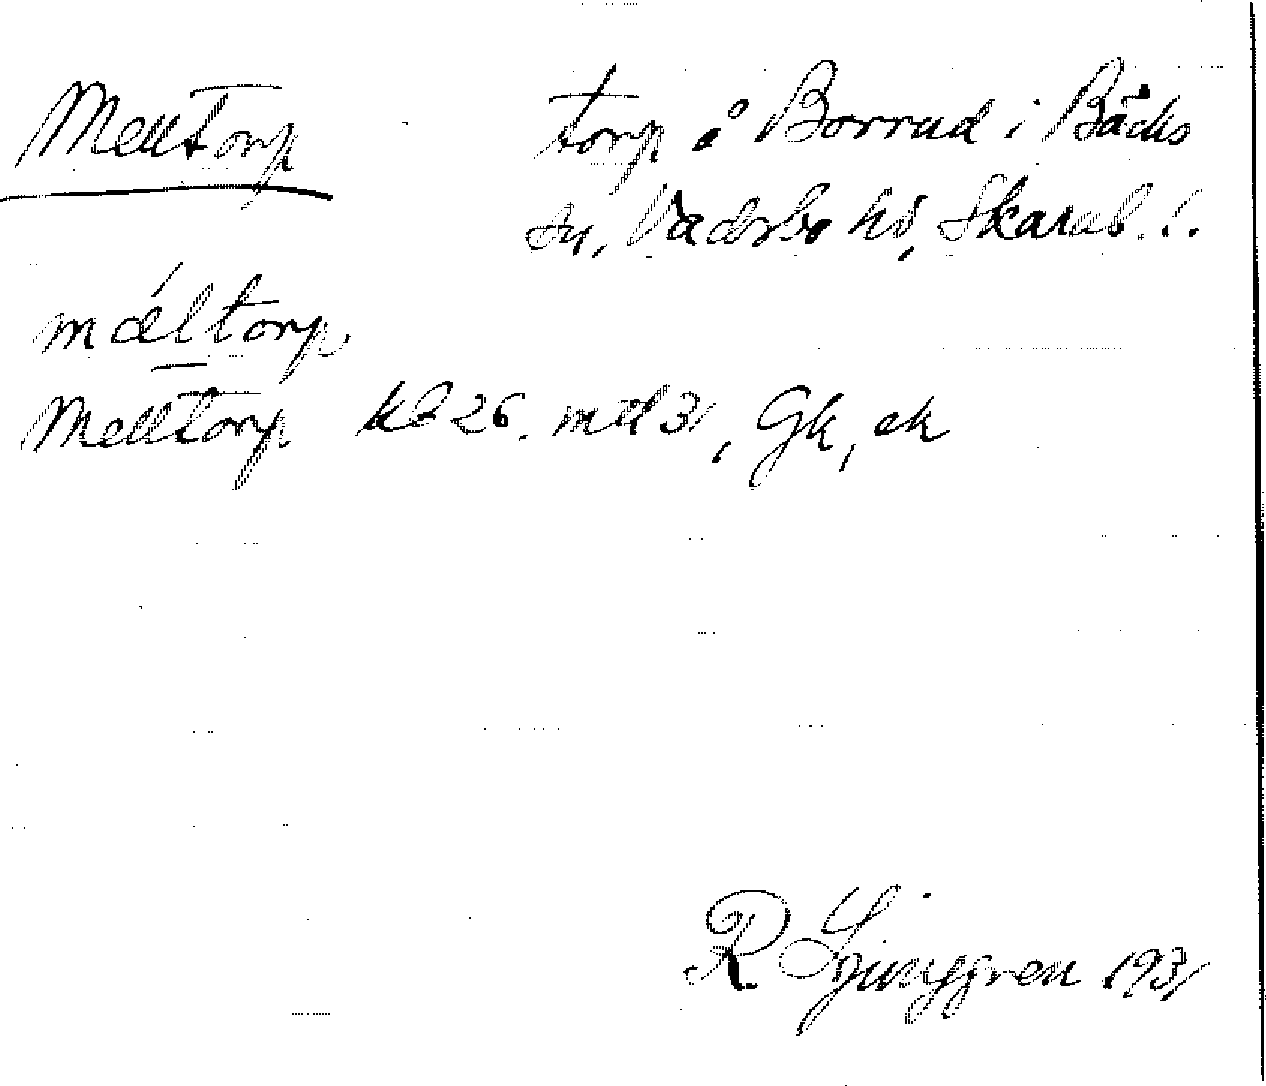 Melltorp torp å Borrud i Bäcks
sn, Vadsbo hd, Skarab. l.
mæltorp
Melltorp kb 26. mtl 31, Gk, ek
R Ljunggren 1931